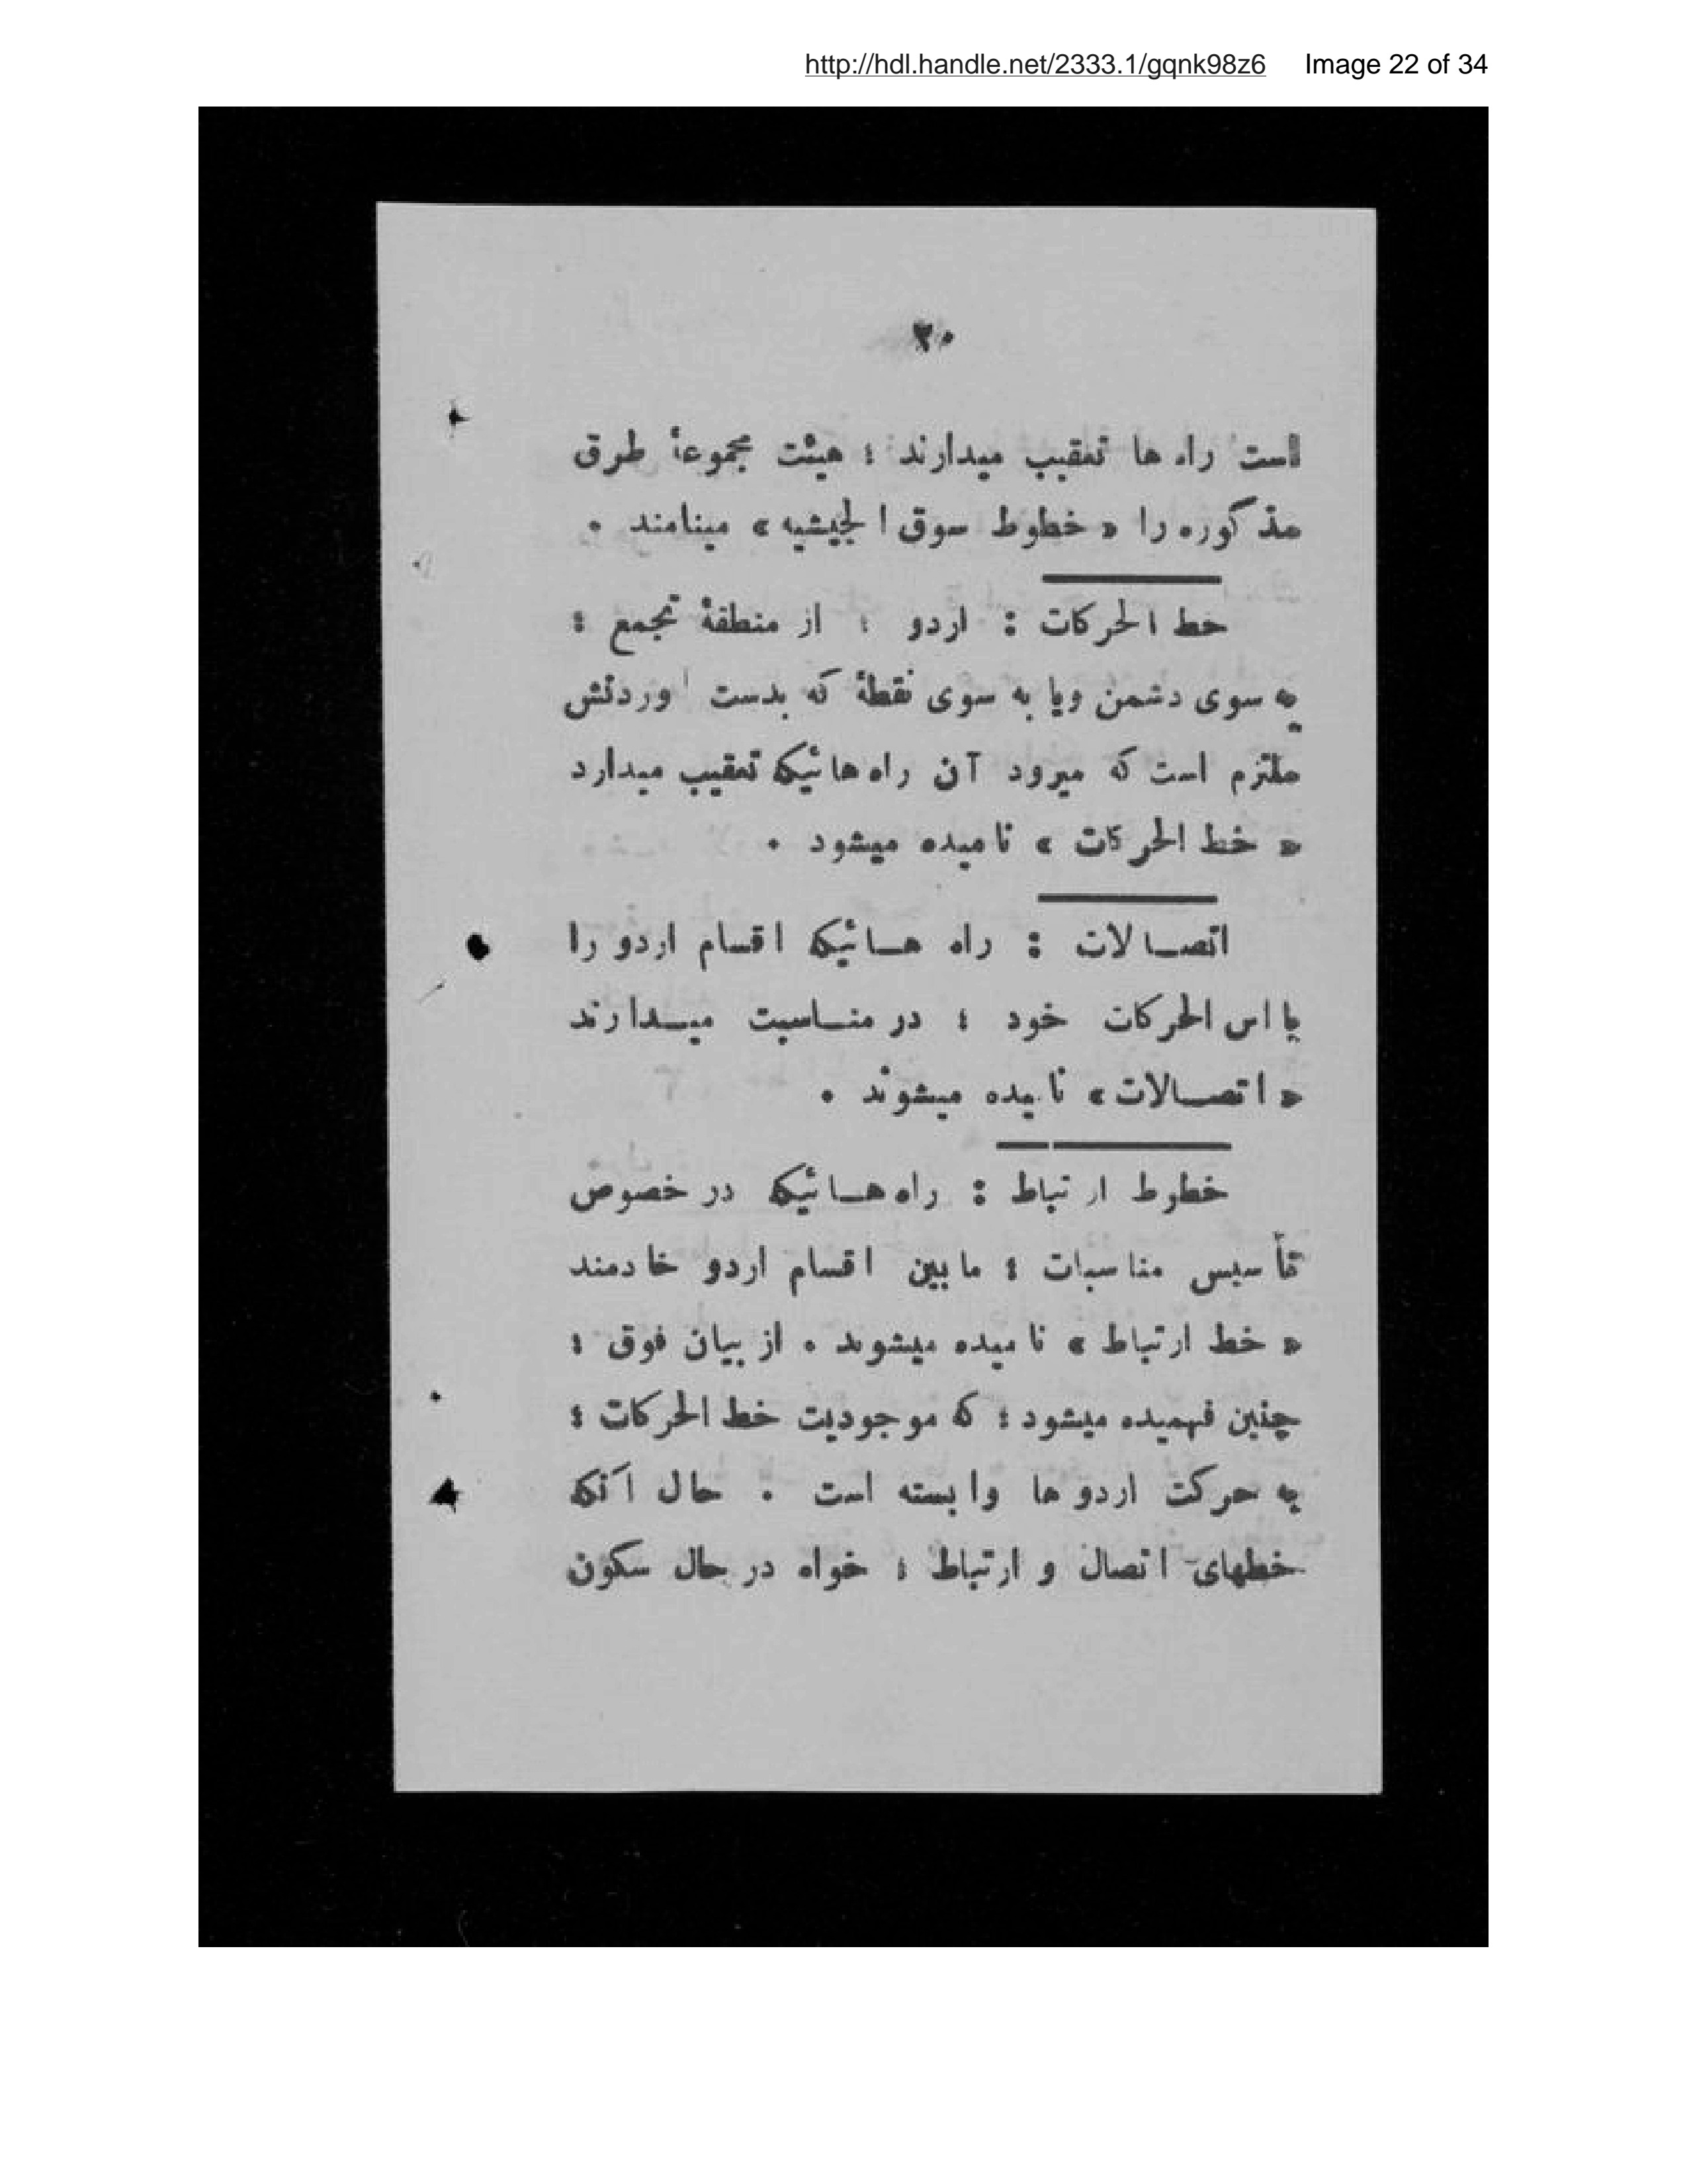 http://hdl.handle.net/2333.1/gqnk98z6 Image 22 of 34
۲۰
است راه ها تعقیب میدارند ؛ هیئت مجموعهٔ طرق
مذکوره را « خطوط سوق الجیشیه » مینامند ۰
خط الحرکات : اردو ؛ از منطقهٔ تجمع ؛
به سوی دشمن ویا به سوی نقطهٔ که بدست اوردنش
ملتزم است که میرود آن راه هائیکه تعقیب میدارد
« خط الحرکات » نامیده میشود ۰
اتصالات : راه هائیکه اقسام اردو را
با اس الحرکات خود ؛ در مناسبت میدارند
« اتصالات » نامیده میشوند ۰
خطوط ارتباط : راه هائیکه در خصوص
تأسیس مناسبات ؛ مابین اقسام اردو خادمند
« خط ارتباط » نامیده میشوند ۰ از بیان فوق ؛
چنین فهمیده میشود ؛ که موجودیت خط الحرکات ؛
به حرکت اردوها وابسته است ۰ حال آنکه
خطهای اتصال و ارتباط ؛ خواه در حال سکون